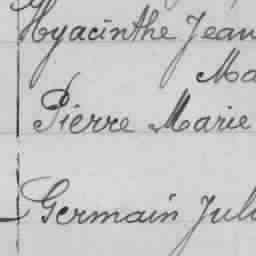 Hyacinthe Jean
Ma
Pierre Marie
Germain Jul